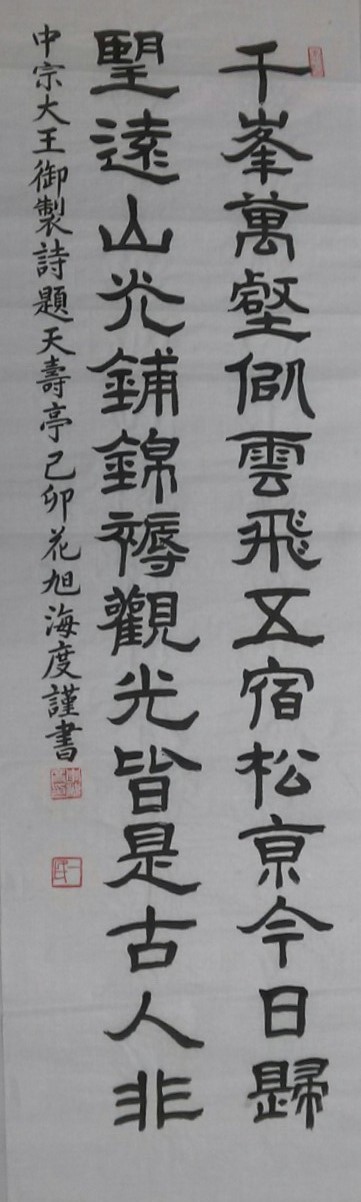 千峯萬壑似雲飛五宿松亰今日歸
朢遠山光鋪錦褥觀光皆是古人非
中宗大王御製詩題天壽亭己卯花旭海度謹書